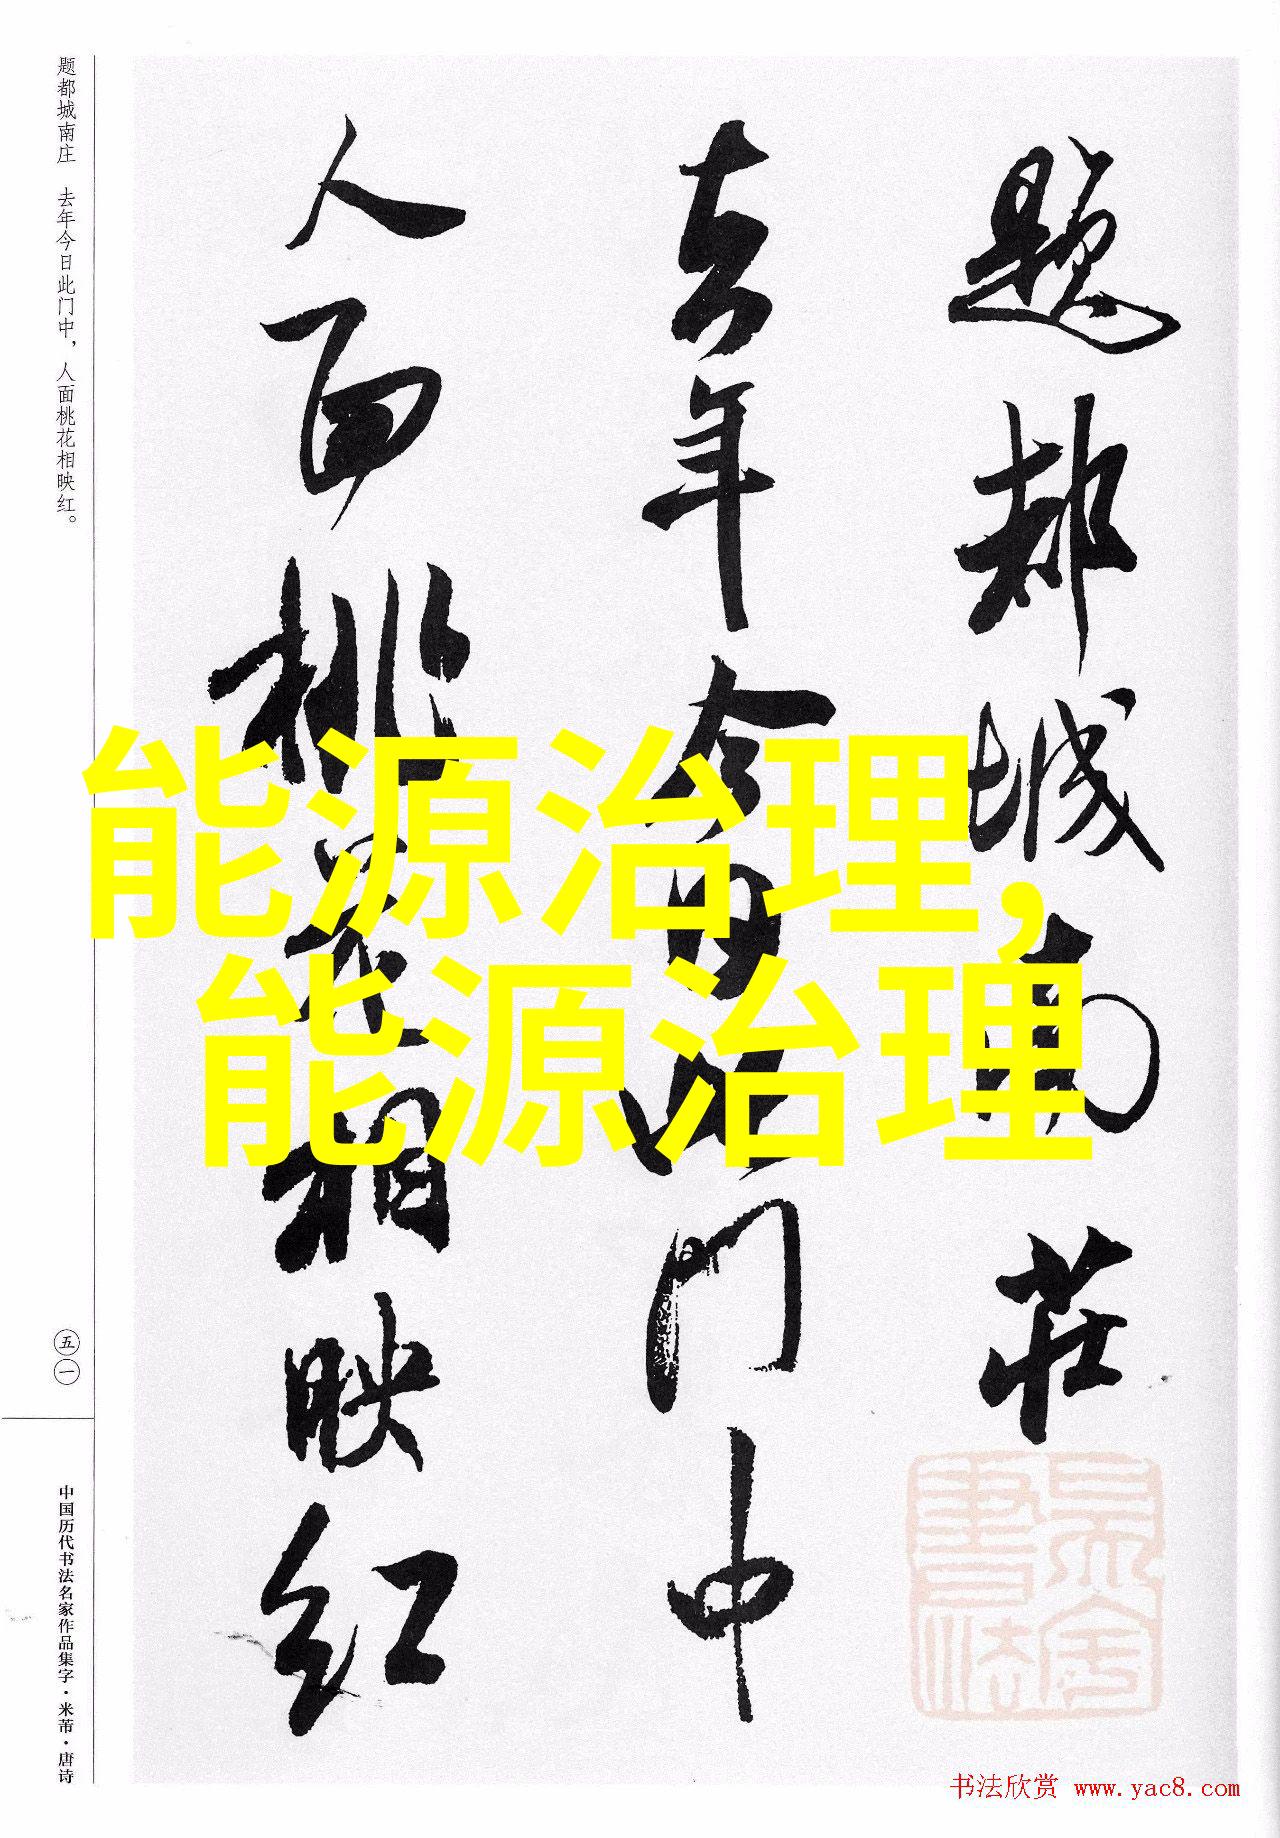 题都城南庄　去年今日此门中，人面桃花相映红。
題都城南莊
去年今日此门中
人面桃花相映红
能源治理,
能源治理
吴舍書法
五一
中国历代书法名家作品集字·米芾·唐诗
书法欣赏 www.yac8.com